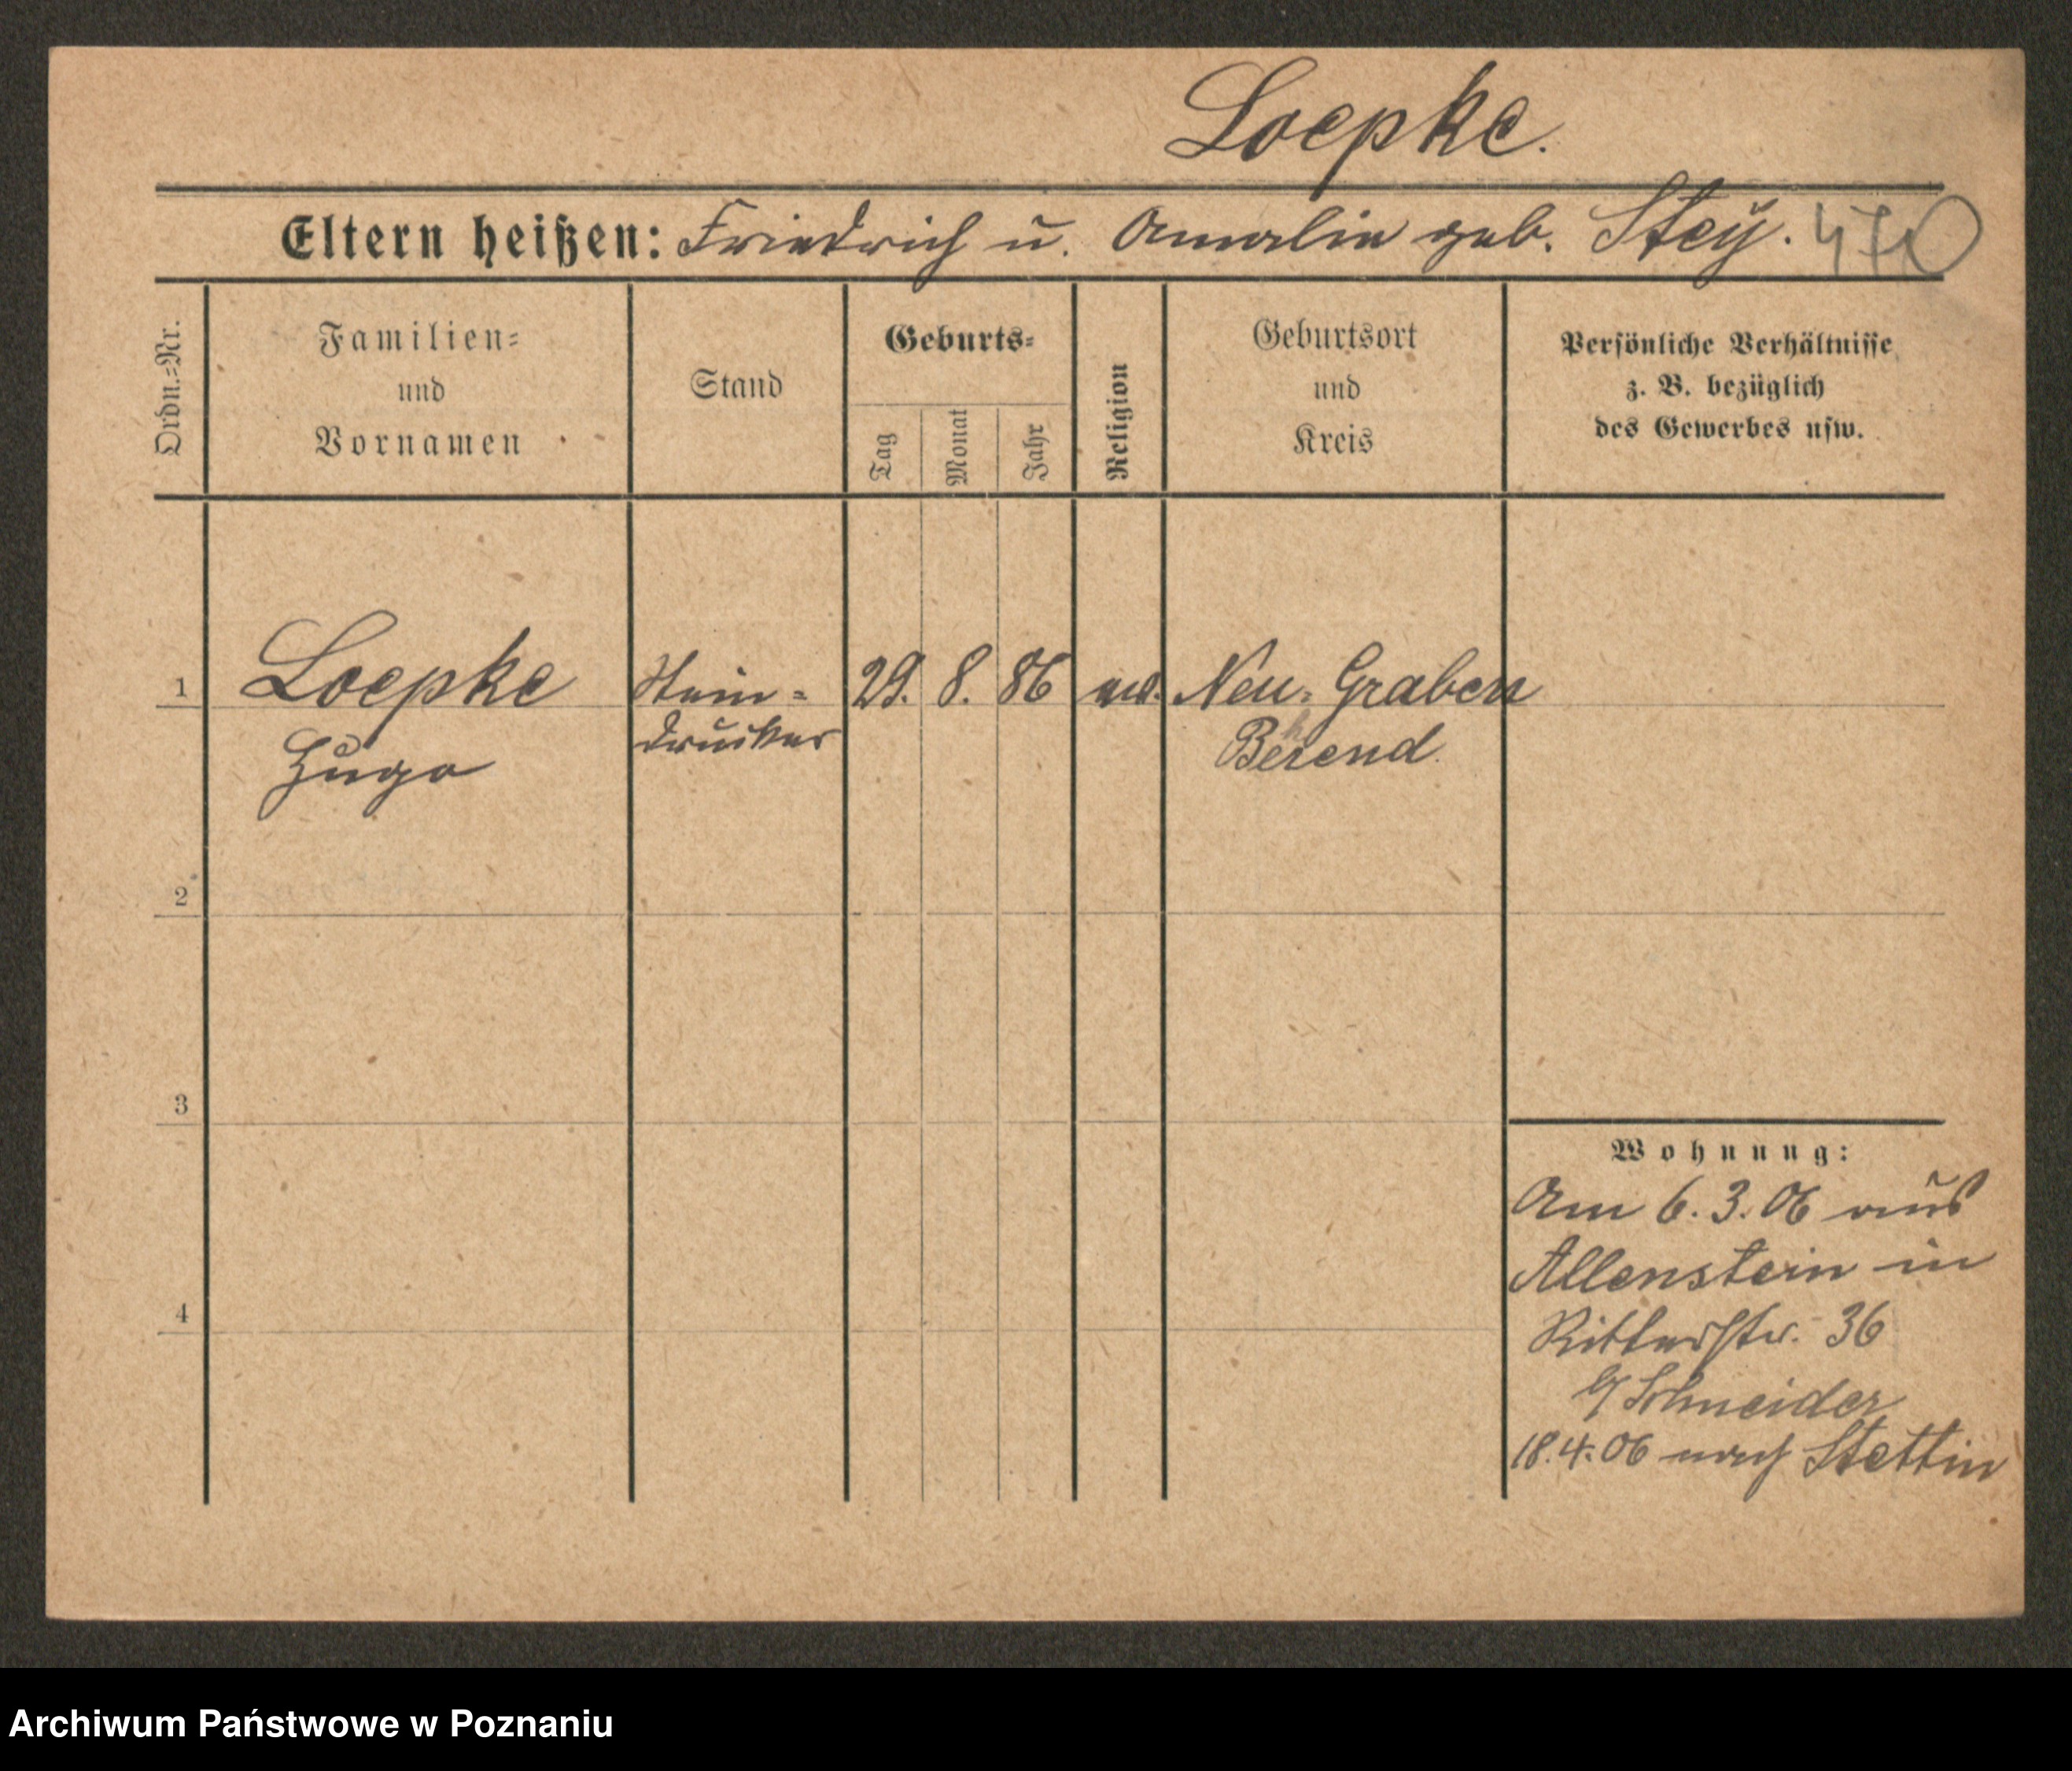 Loepke.
Eltern heißen: Friedrich u. Amalie geb. Stey. 470
Ordn.=Nr.
Familien=
und
Vornamen
Stand
Geburts=
Tag
Monat
Jahr
Religion
Geburtsort
und
Kreis
Persönliche Verhältnisse
z. B. bezüglich
des Gewerbes usw.
1 Loepke Stein= 29. 8. 86 Neu-Graben
Hugo drucker Berend.
2
3
4
Wohnung:
Am 6.3.06 aus
Allenstein in
Ritterstr. 36
b/ Schneider
18.4.06 nach Stettin
Archiwum Państwowe w Poznaniu